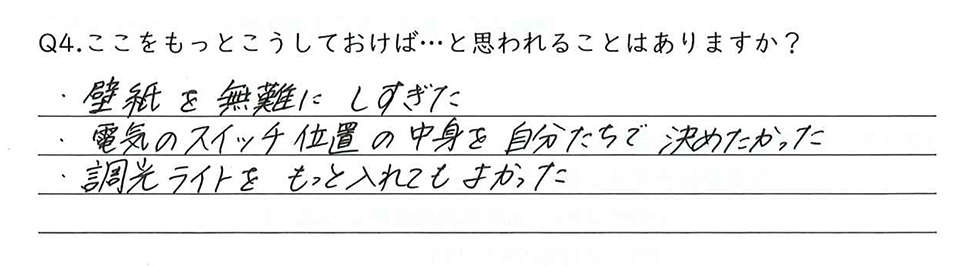 Q4.ここをもっとこうしておけば…と思われることはありますか？
・壁紙を無難にしすぎた
・電気のスイッチ位置の中身を自分たちで決めたかった
・調光ライトをもっと入れてもよかった